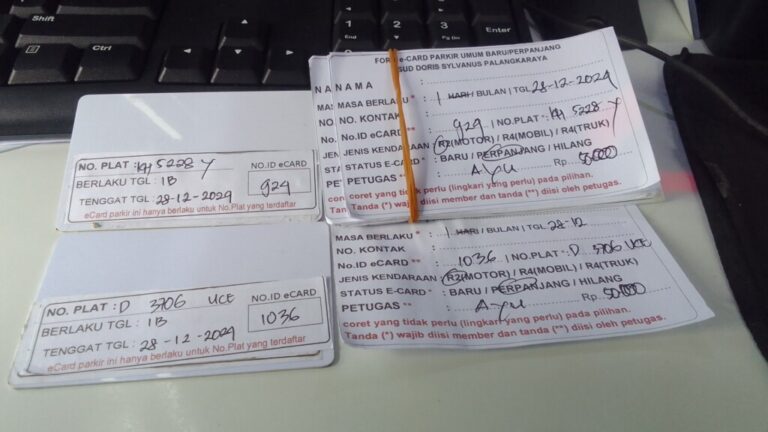 Shift
Ctrl
Alt
Enter
End
Ins
Del
1
2
3
0
NO. PLAT : KH 5228 Y
BERLAKU TGL : 1B
TENGGAT TGL : 28-12-2024
NO.ID eCARD
929
eCard parkir ini hanya berlaku untuk No.Plat yang terdaftar
NO. PLAT : D 3706 UCE
BERLAKU TGL : 1B
TENGGAT TGL : 28-12-2024
NO.ID eCARD
1036
eCard parkir ini hanya berlaku untuk No.Plat yang terdaftar
e-CARD PARKIR UMUM BARU/PERPANJANG
RSUD DORIS SYLVANUS PALANGKARAYA
NAMA :
MASA BERLAKU * : 1 HARI / BULAN | TGL 28-12-2024
NO. KONTAK :
No.ID eCARD ** : 929 | NO.PLAT * : KH 5228 Y
JENIS KENDARAAN : R2(MOTOR) / R4(MOBIL) / R4(TRUK)
STATUS E-CARD * : BARU / PERPANJANG / HILANG
PETUGAS ** : Ayu Rp. 50.000
coret yang tidak perlu (lingkari yang perlu) pada pilihan.
Tanda (*) wajib diisi member dan tanda (**) diisi oleh petugas.
MASA BERLAKU * : 1 HARI / BULAN | TGL 28-12
NO. KONTAK :
No.ID eCARD ** : 1036 | NO.PLAT * : D 3706 UCE
JENIS KENDARAAN : R2(MOTOR) / R4(MOBIL) / R4(TRUK)
STATUS E-CARD * : BARU / PERPANJANG / HILANG
PETUGAS ** : Ayu Rp. 50.000
coret yang tidak perlu (lingkari yang perlu) pada pilihan.
Tanda (*) wajib diisi member dan tanda (**) diisi oleh petugas.